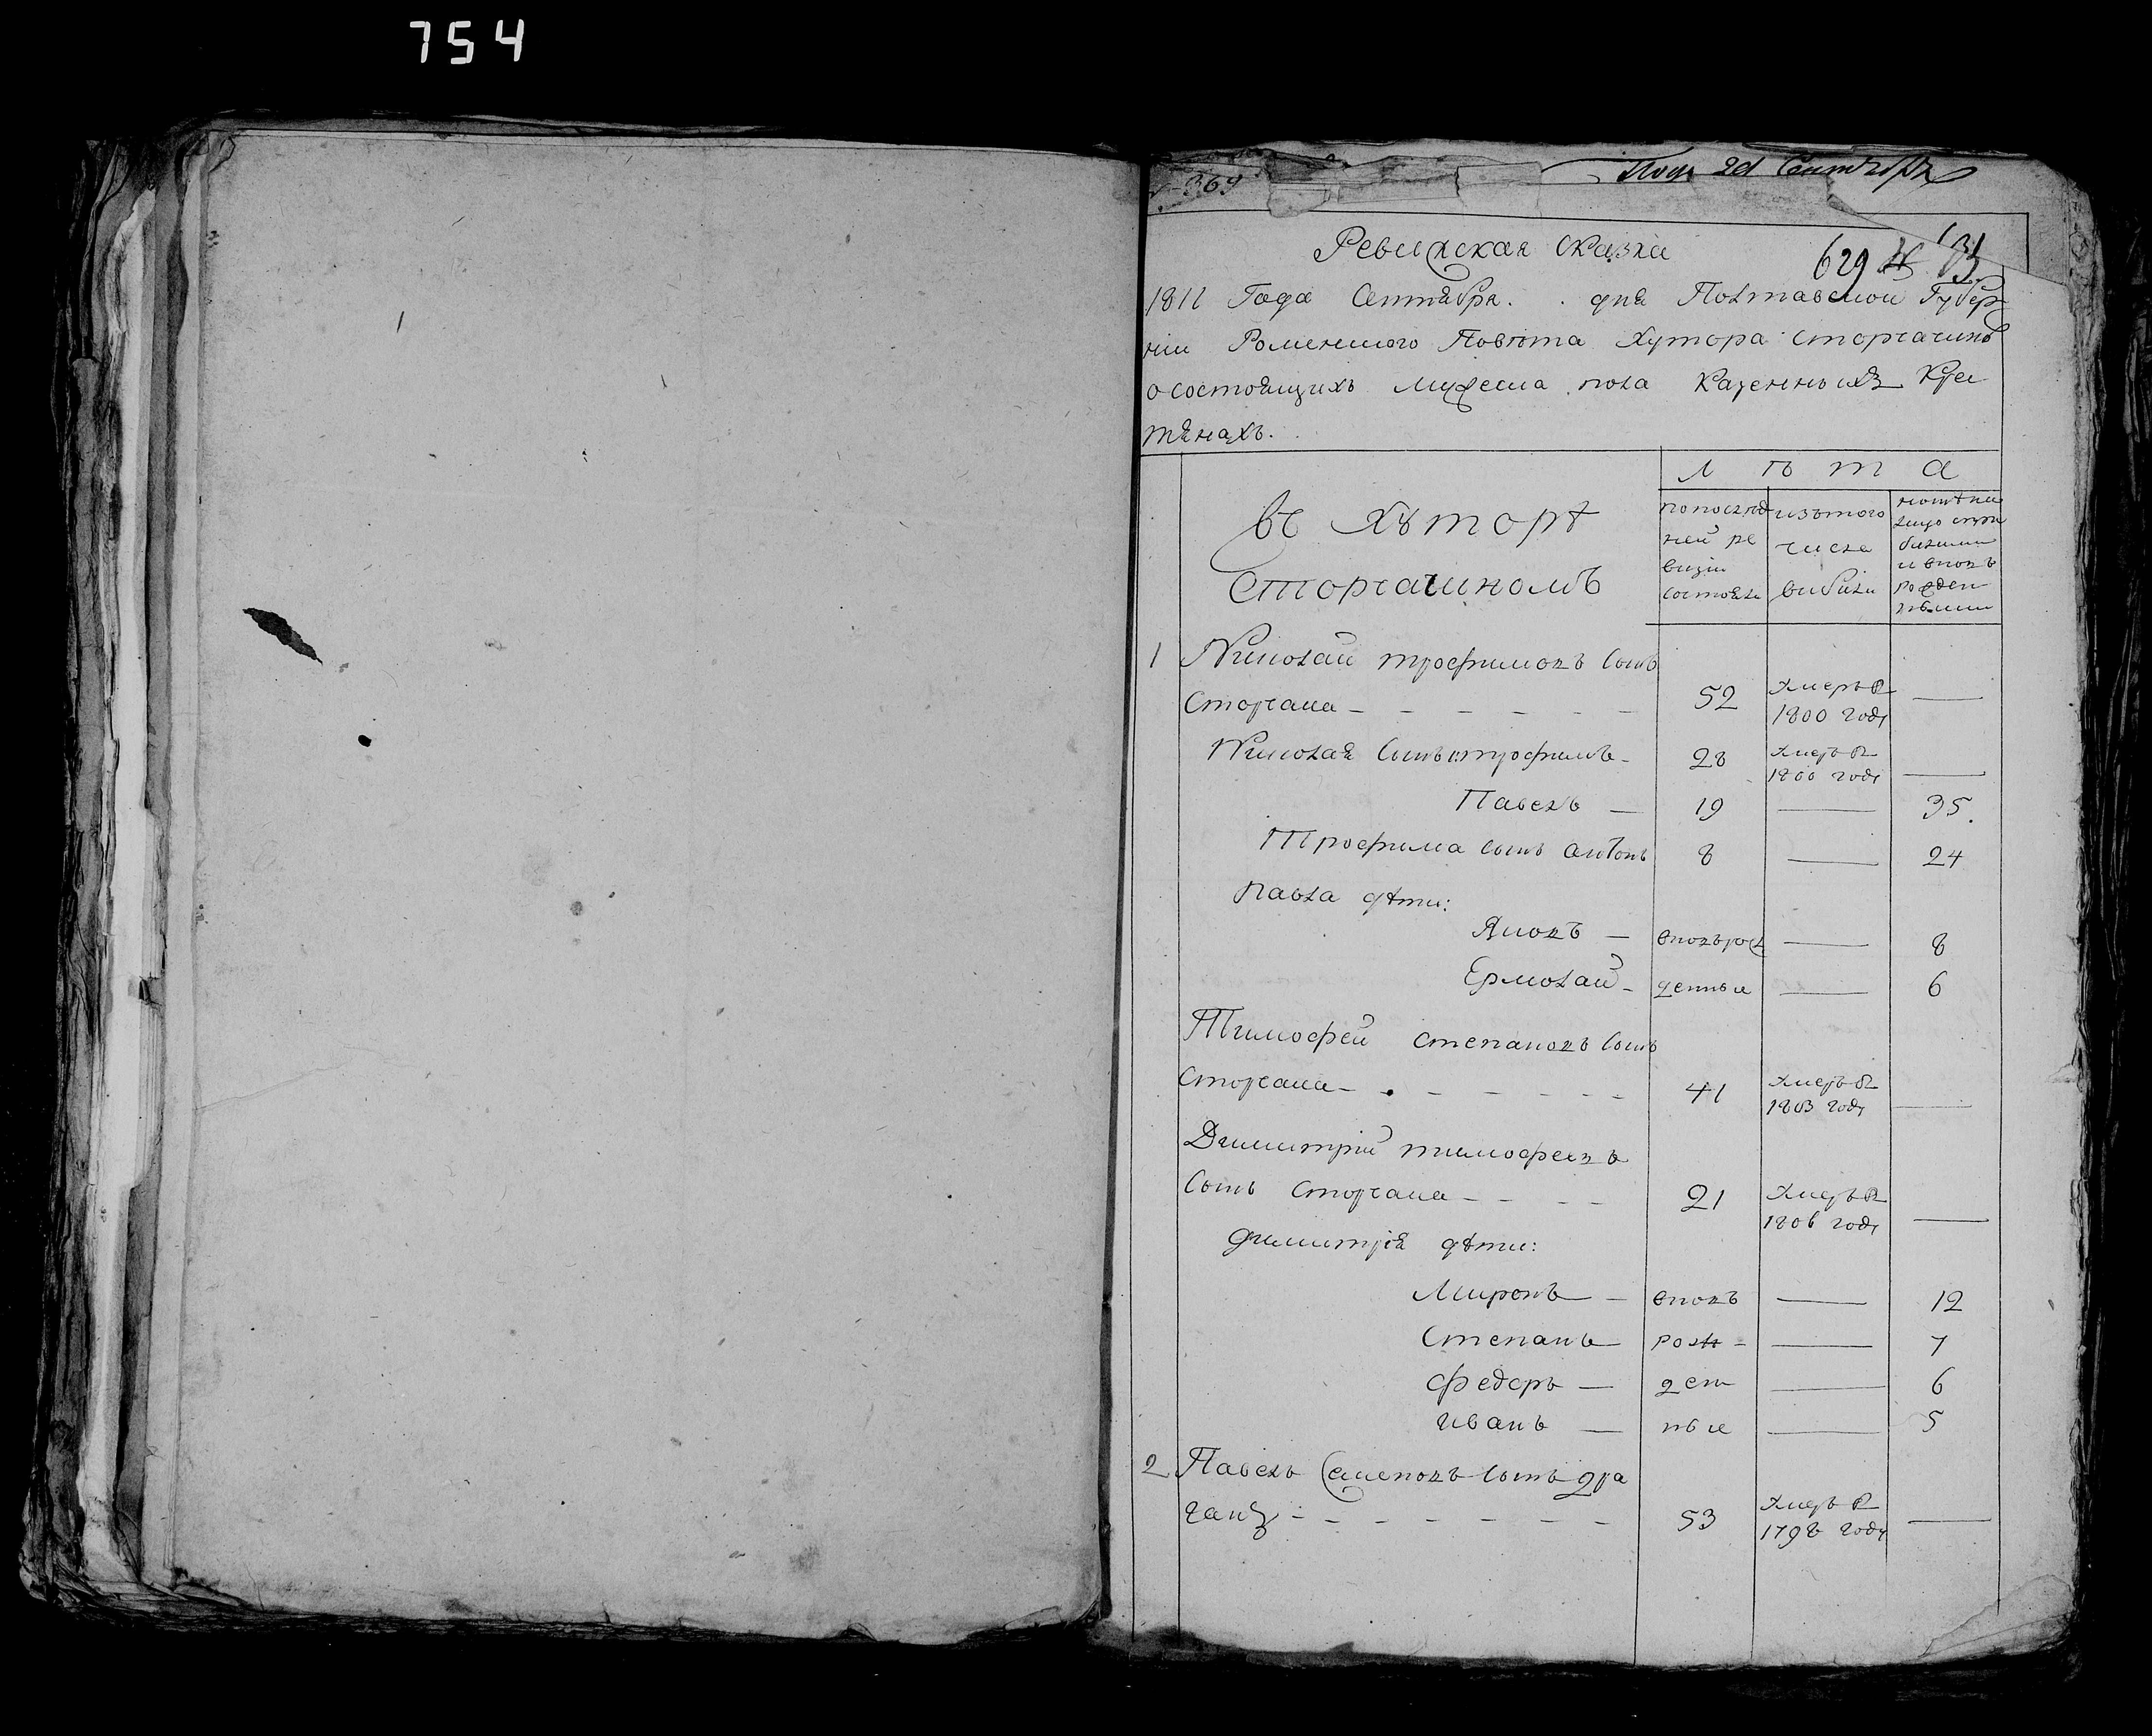 754
369
Пода 2d Сентября
Ревижская сказка
629
1811 Года Сентября . . дня Полтавской Губер
нии Роменского Повѣта Хутора Сторчачинъ
о состоящихъ мужеска пола Казенныхъ Крес
тянахъ.
Л ѣ т а
въ хуторѣ
Сторчаиномъ
по послѣд
ней ре
визіи
состояли
изътого
числа
выбили
нынѣ на
лицо
и вновь
рожден
ными
1 Николай трофимовъ сынъ
Сторчака – – – – – – 52 умеръ в 1800 году —
Николая сынъ: трофимъ – 28 умеръ в 1800 году —
Павелъ — 19 — 35.
Трофима сынъ антонъ 8 — 24
павла дѣти:
Яковъ — вновьрож — 8
Ермолай – денные — 6
Тимофей степановъ сынъ
Сторчака – – – – – – 41 умеръ в 1803 году —
Димитрий тимофеевъ
сынъ Сторчака – – – – 21 умеръ в 1806 году —
димитрія дѣти:
Миронъ — вновь — 12
Степанъ — рож – — 7
федоръ — ден — 6
иванъ — ные — 5
2 Павелъ Семеновъ сынъ дра
ганъ – – – – – – – 53 умеръ в 1798 году —